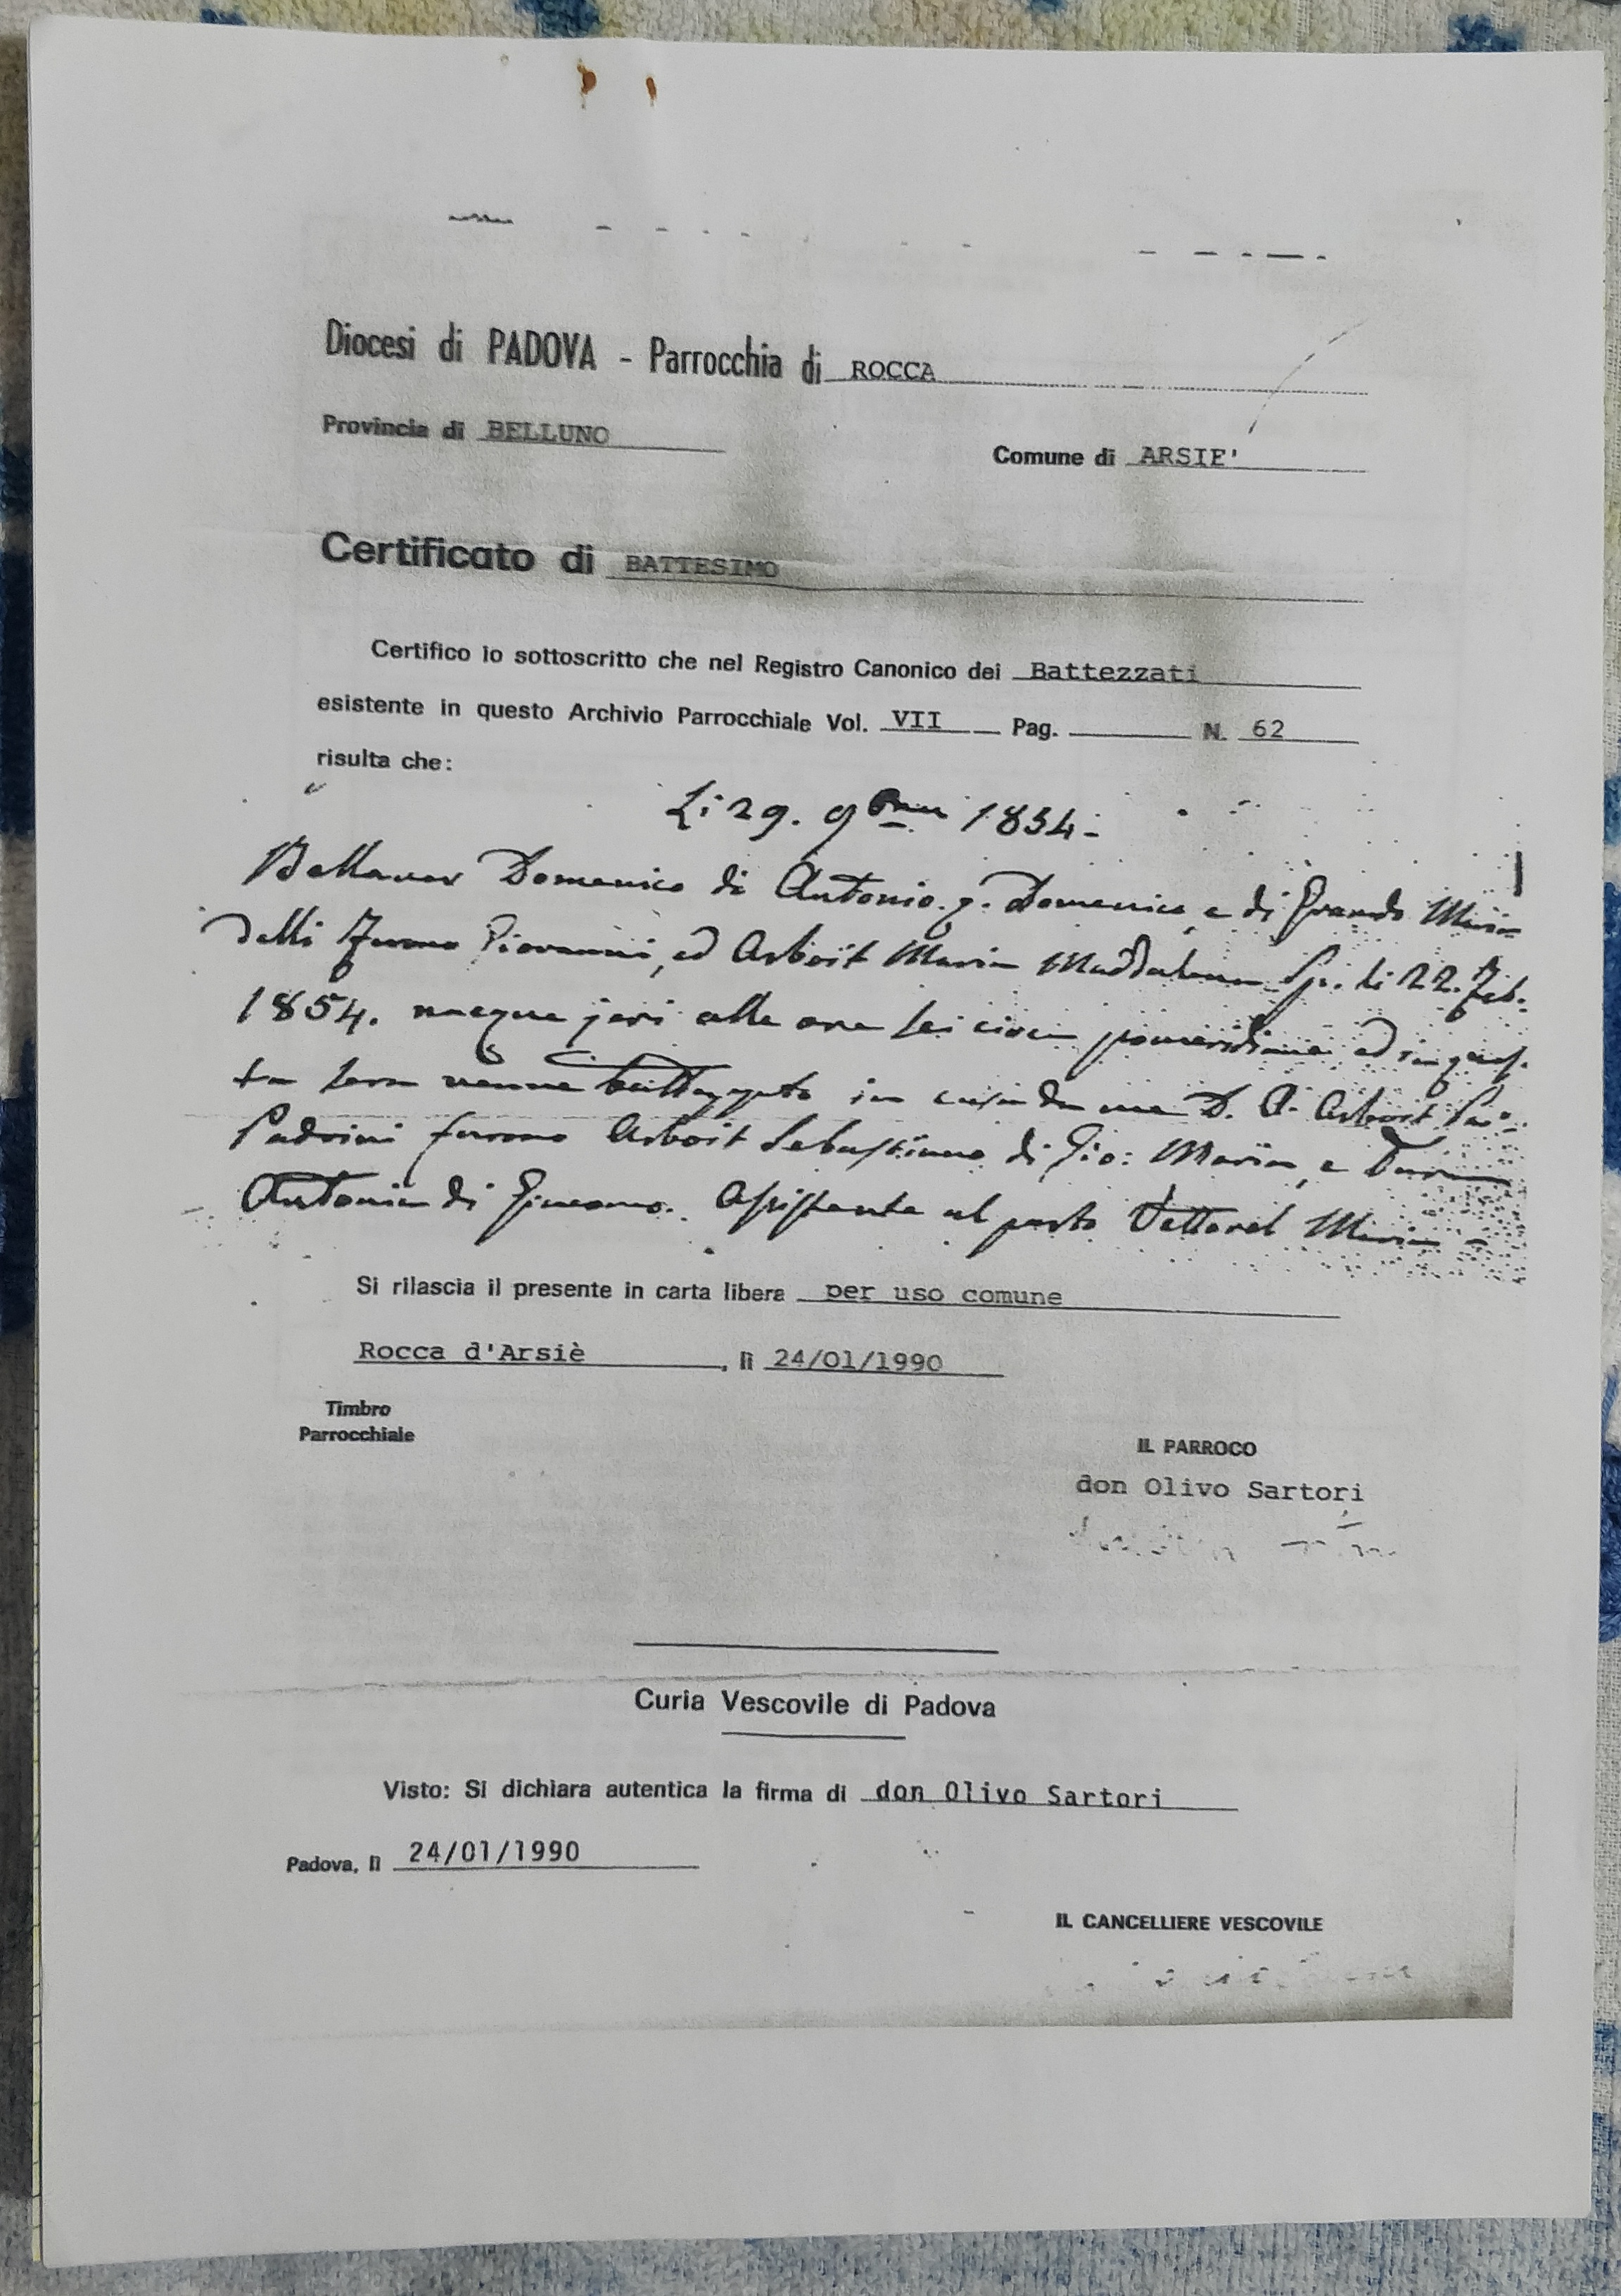 Diocesi di PADOVA - Parrocchia di ROCCA
Provincia di BELLUNO
Comune di ARSIE'
Certificato di BATTESIMO
Certifico io sottoscritto che nel Registro Canonico dei Battezzati
esistente in questo Archivio Parrocchiale Vol. VII Pag. N. 62
risulta che:
Li 29. 9bre 1854-
Bellaver Domenico di Antonio q. Domenico, e di Grando Maria
delli furono Giovanni, ed Arboit Maria Maddalena Sp. li 22. Feb.
1854. nacque jeri alle ore sei circa pomeridiane ed in ques
ta sera venne battezzato in casa da me D. A. Arboit
Padrini furono Arboit Sebastiano di Gio: Maria, e
Antonia di Giacomo. Assistente al parto Vettorel Maria -
Si rilascia il presente in carta libera per uso comune
Rocca d'Arsiè, lì 24/01/1990
Timbro
Parrocchiale
IL PARROCO
don Olivo Sartori
Curia Vescovile di Padova
Visto: Si dichiara autentica la firma di don Olivo Sartori
Padova, lì 24/01/1990
IL CANCELLIERE VESCOVILE